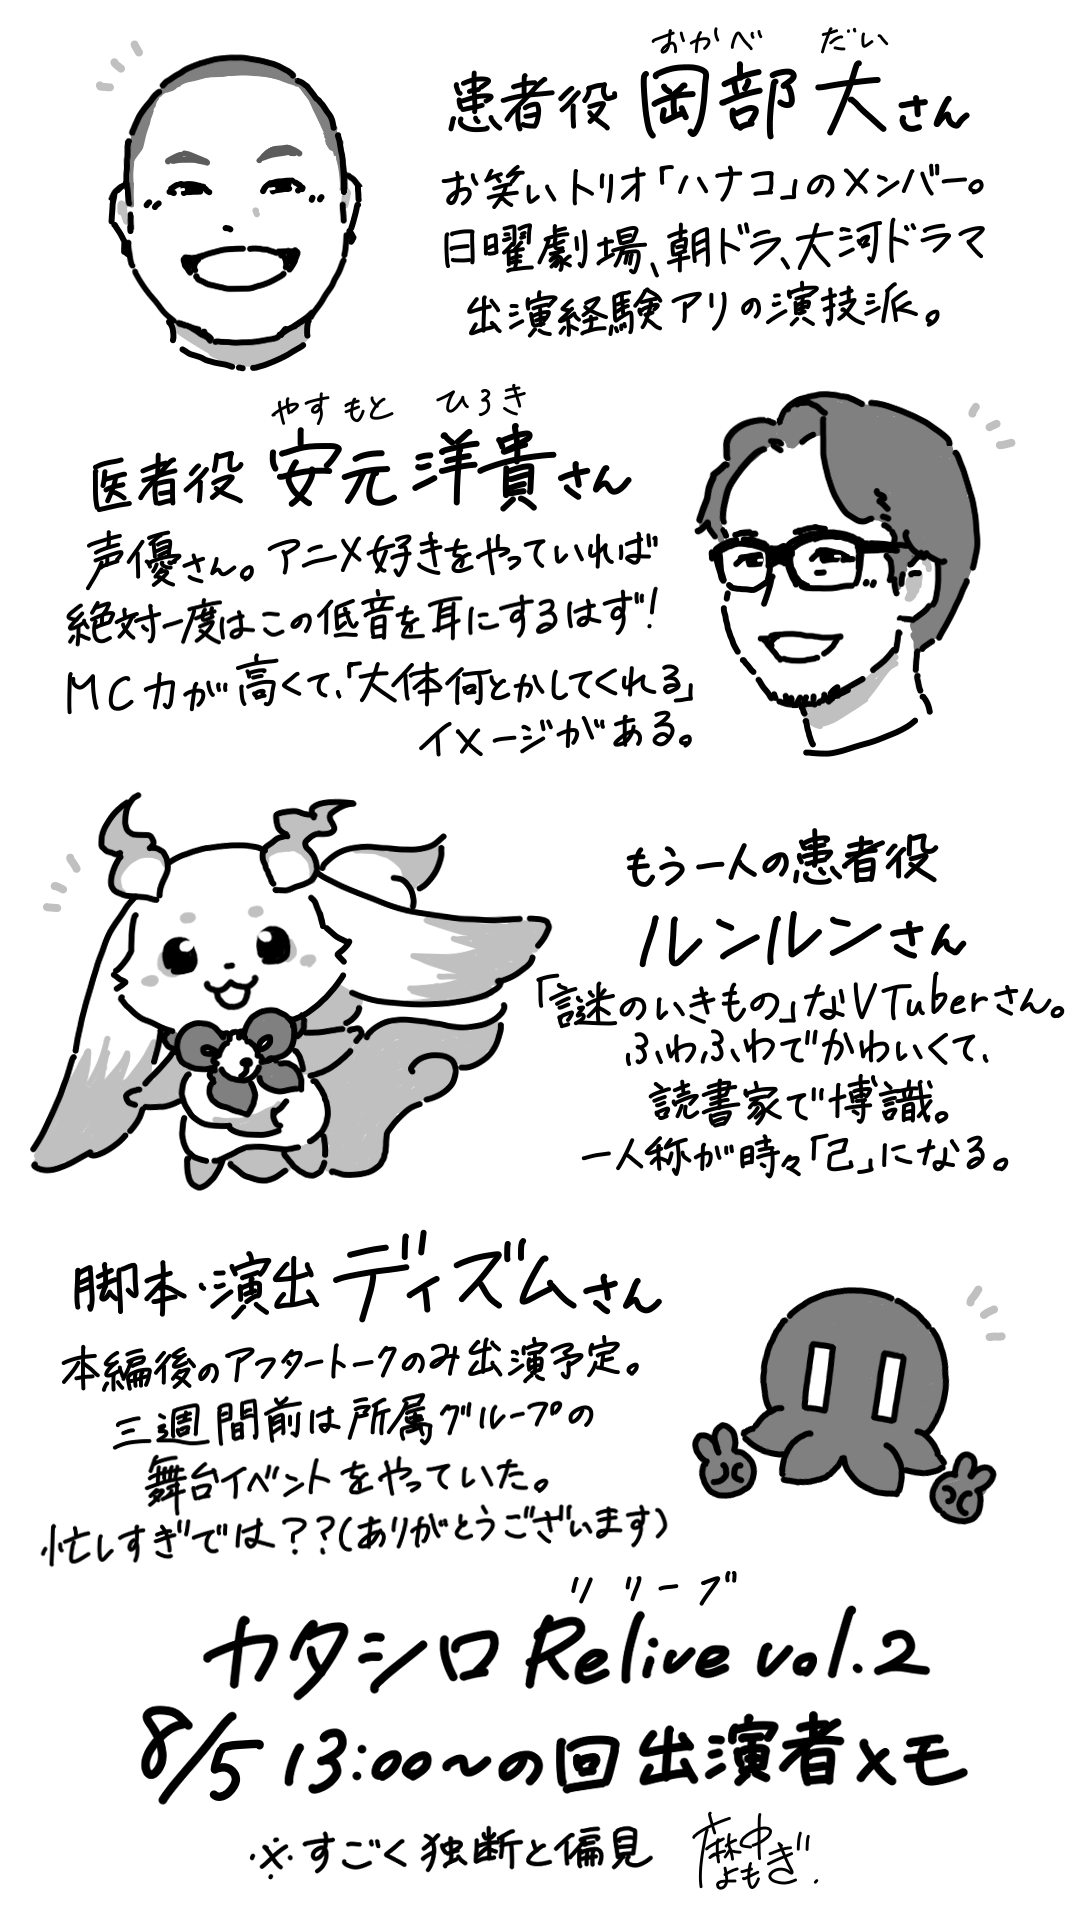 おかべ だい
患者役 岡部 大さん
お笑いトリオ「ハナコ」のメンバー。
日曜劇場、朝ドラ、大河ドラマ
出演経験アリの演技派。
やすもと ひろき
医者役 安元 洋貴さん
声優さん。アニメ好きをやっていれば
絶対一度はこの低音を耳にするはず!
MC力が高くて、「大体何とかしてくれる」
イメージがある。
もう一人の患者役
ルンルンさん
「謎のいきもの」なVTuberさん。
ふわふわでかわいくて、
読書家で博識。
一人称が時々「己」になる。
脚本・演出 ディズムさん
本編後のアフタートークのみ出演予定。
三週間前は所属グループの
舞台イベントをやっていた。
忙しすぎでは??(ありがとうございます)
リリーブ
カタシロ Relive vol.2
8/5 13:00~の回 出演者メモ
※すごく独断と偏見
麻中よもぎ.